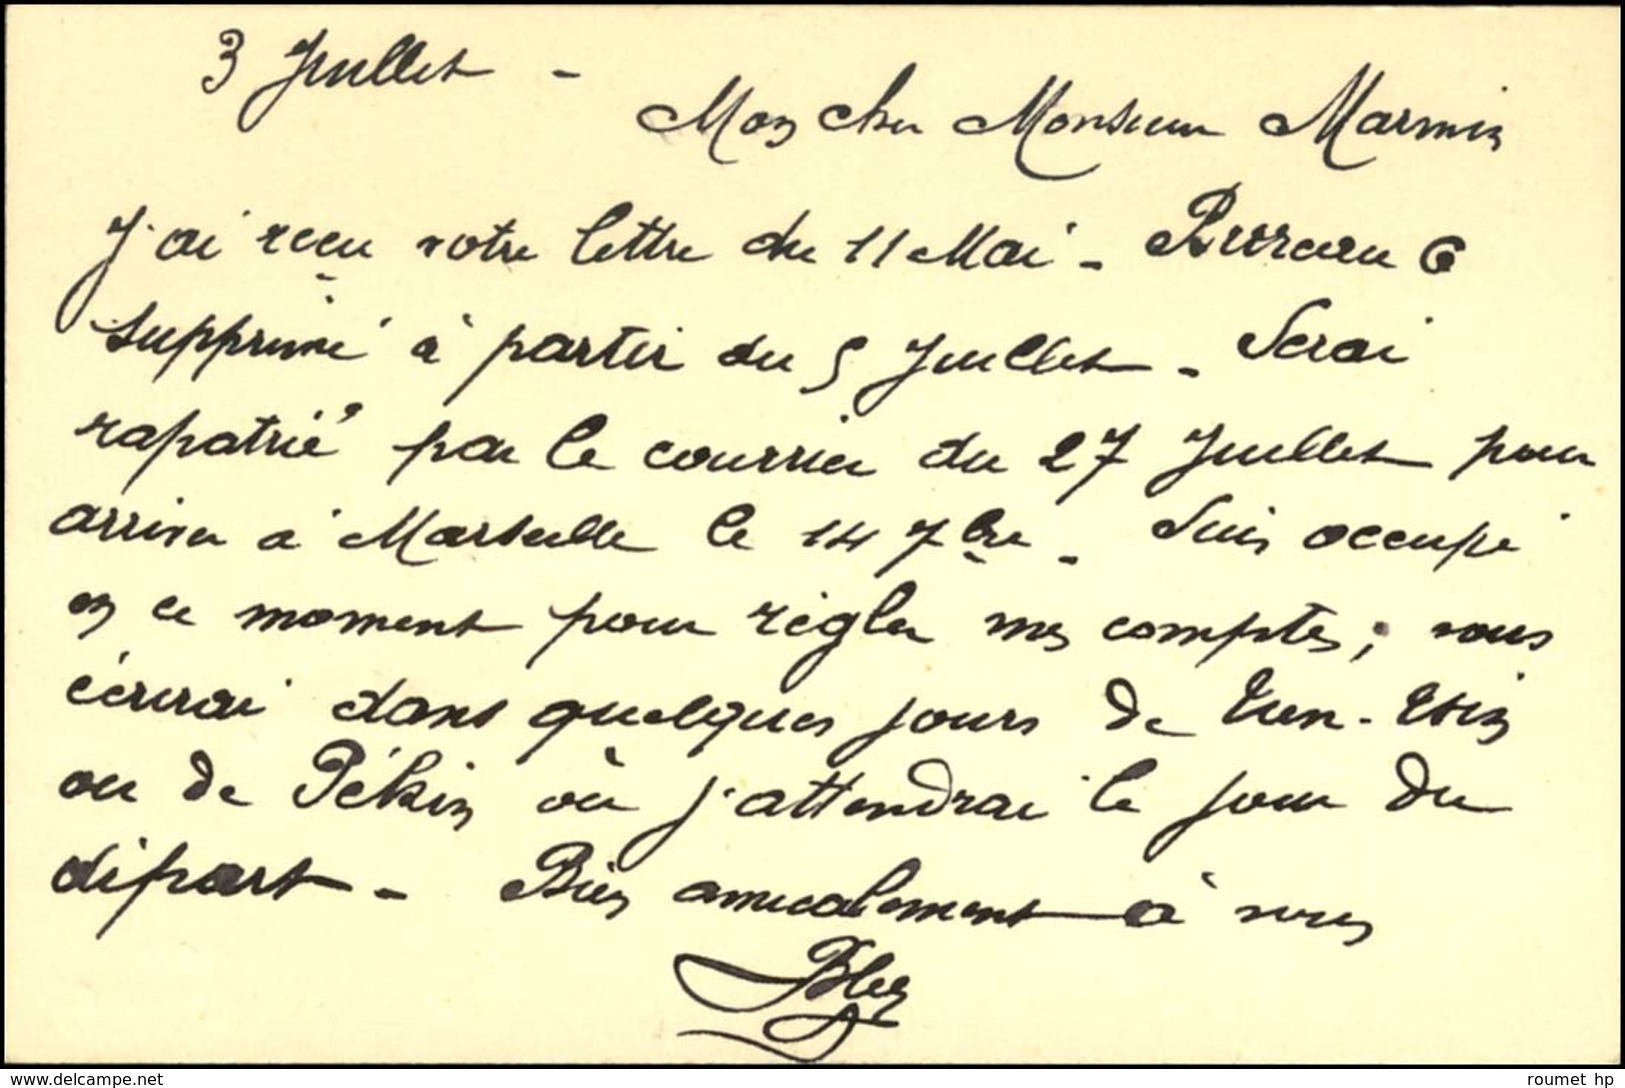 3 Juillet -
Mon cher Monsieur Marmin
J'ai reçu votre lettre du 11 Mai - Bureau 6
supprimé à partir du 5 Juillet - Serai
rapatrié par le courrier du 27 Juillet pour
arriver à Marseille le 14 7bre - Suis occupé
en ce moment pour régler mes comptes ; vous
écrirai dans quelques jours de Tien-Tsin
ou de Pékin où j'attendrai le jour du
départ - Bien amicalement à vous
delcampe.net
roumet hp